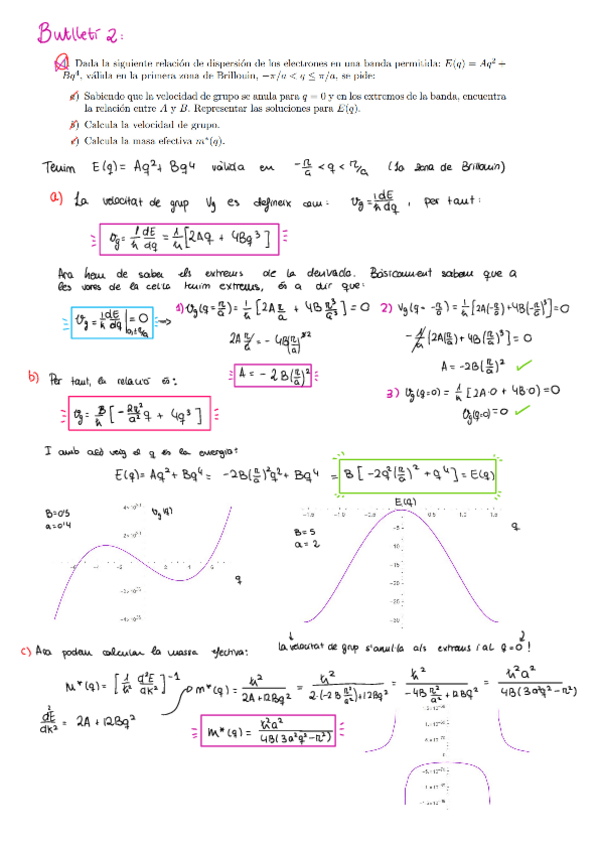 Butlletí 2:
Dada la siguiente relación de dispersión de los electrones en una banda permitida: E(q) = Aq² +
Bq⁴, válida en la primera zona de Brillouin, −π/a < q ≤ π/a, se pide:
a) Sabiendo que la velocidad de grupo se anula para q = 0 y en los extremos de la banda, encuentra
la relación entre A y B. Representar las soluciones para E(q).
b) Calcula la velocidad de grupo.
c) Calcula la masa efectiva m*(q).
Tenim E(q) = Aq² + Bq⁴ vàlida en -π/a < q < π/a (1a zona de Brillouin)
a) La velocitat de grup Vg es defineix com: Vg = 1/ħ dE/dq , per tant:
Vg = 1/ħ dE/dq = 1/ħ [2Aq + 4Bq³]
Ara hem de saber els extrems de la derivada. Bàsicament sabem que a
les vores de la cel·la tenim extrems, és a dir que:
Vg = 1/ħ dE/dq | = 0 ⇒
1) Vg(q=π/a) = 1/ħ [2A π/a + 4B π³/a³] = 0
2A π/a = -4B(π/a)³
A = -2B(π/a)²
2) Vg(q=-π/a) = 1/ħ [2A(-π/a) + 4B(-π/a)³] = 0
-1/ħ [2A(π/a) + 4B(π/a)³] = 0
A = -2B(π/a)² ✓
3) Vg(q=0) = 1/ħ [2A·0 + 4B·0] = 0
Vg(q=0) = 0 ✓
b) Per tant, la relació és:
Vg = B/ħ [-2π²/a² q + 4q³]
I amb això veig el q en la energia:
E(q) = Aq² + Bq⁴ = -2B(π/a)²q² + Bq⁴ = B[-2q²(π/a)² + q⁴] = E(q)
B=0'5
a=0'4
Vg(q)
q
E(q)
B=5
a=2
q
La velocitat de grup s'anul·la als extrems i al q=0!
c) Ara podem calcular la massa efectiva:
M*(q) = [1/ħ² d²E/dk²]⁻¹
m*(q) = ħ²/(2A+12Bq²) = ħ²/(2·(-2B π²/a²)+12Bq²) = ħ²/(-4B π²/a² + 12Bq²) = ħ²a²/(4B(3a²q²-π²))
d²E/dk² = 2A + 12Bq²
m*(q) = ħ²a²/(4B(3a²q²-π²))